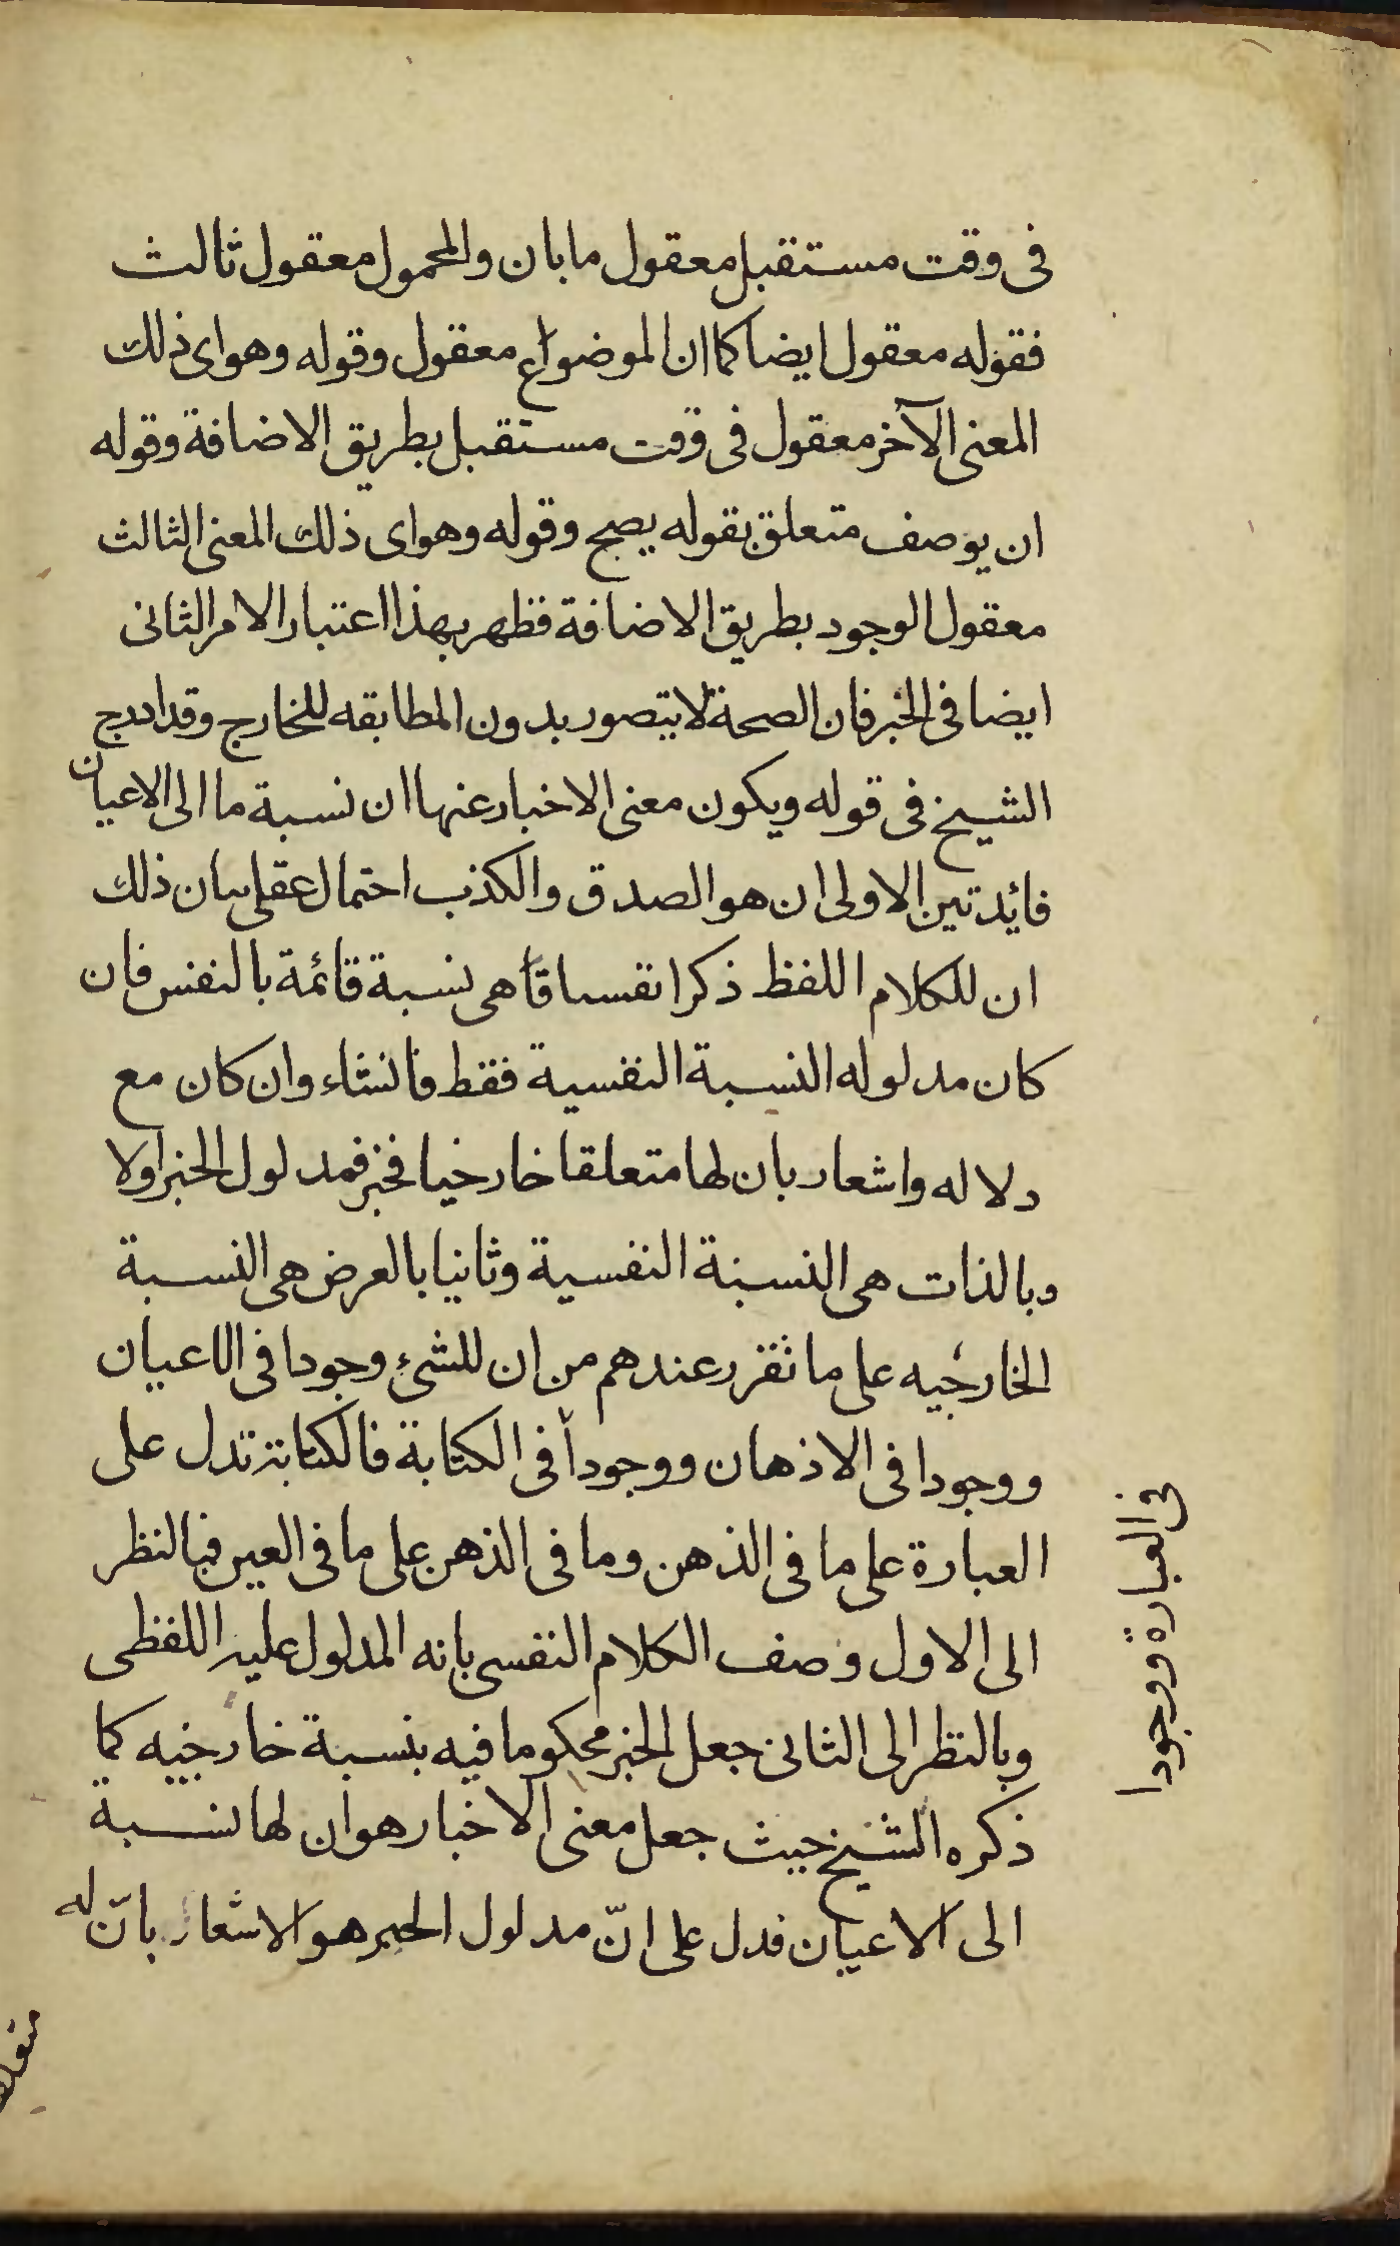 فى وقت مستقبل معقول مابان والمحمول معقول ثالث
فقوله معقول ايضا كما ان الموضوع معقول وقوله وهو اى ذلك
المعنى الآخر معقول فى وقت مستقبل بطريق الاضافة وقوله
ان يوصف متعلق بقوله يصح وقوله وهو اى ذلك المعنى الثالث
معقول الوجود بطريق الاضافة فظهر بهذا اعتبار الامر الثانى
ايضا فى الخبر فان الصحة لا يتصور بدون المطابقه للخارج وقد ادرج
الشيخ فى قوله ويكون معنى الاخبار عنها ان نسبة ما الى الاعيان
فائدتين الاولى ان هو الصدق والكذب احتمال عقلى بيان ذلك
ان للكلام اللفظ ذكرا نفسيا هى نسبة قائمة بالنفس فان
كان مدلوله النسبة النفسية فقط فانشاء وان كان مع
دلاله واشعار بان لها متعلقا خارخيا فخبر فمدلول الخبر اولا
وبالذات هى النسبنة النفسية وثانيا بالعرض هى النسبة
الخارجيه على ما تقرر عندهم من ان للشئ وجودا فى الاعيان
ووجودا فى الاذهان ووجوداً فى الكتابة فالكتابة تدل على
العبارة على ما فى الذهن وما فى الذهن على ما فى العين فبالنظر
الى الاول وصف الكلام النفسى بانه المدلول عليه اللفظى
وبالنظر الى الثانى جعل الخبر محكوما فيه بنسبة خارجيه كما
ذكره الشيخ حيث جعل معنى الاخبار هو ان لها نسبة
الى الاعيان فدل على انّ مدلول الخبر هو الاشعار بانّ له
فى العبارة ووجودا